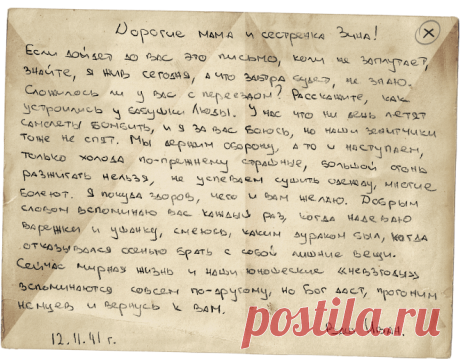 Дорогие мама и сестренка Зина!
Если дойдет до вас это письмо, коли не заплутает,
знайте, я жив сегодня, а что завтра будет, не знаю.
Сложилось ли у вас с переездом? Расскажите, как
устроились у бабушки Люды. У нас что ни день летят
самолеты бомбить, и я за вас боюсь, но наши зенитчики
тоже не спят. Мы держим оборону, а то и наступаем,
только холода по-прежнему страшные, большой огонь
разжигать нельзя, не успеваем сушить одежду, многие
болеют. Я покуда здоров, чего и вам желаю. Добрым
словом вспоминаю вас каждый раз, когда надеваю
варежки и ушанку, смеюсь, каким дураком был, когда
отказывался осенью брать с собой лишние вещи.
Сейчас мирная жизнь и наши юношеские «невзгоды»
вспоминаются совсем по-другому, но Бог даст, прогоним
немцев и вернусь к вам.
12.11.41 г. Ваш Иван.
postila.ru